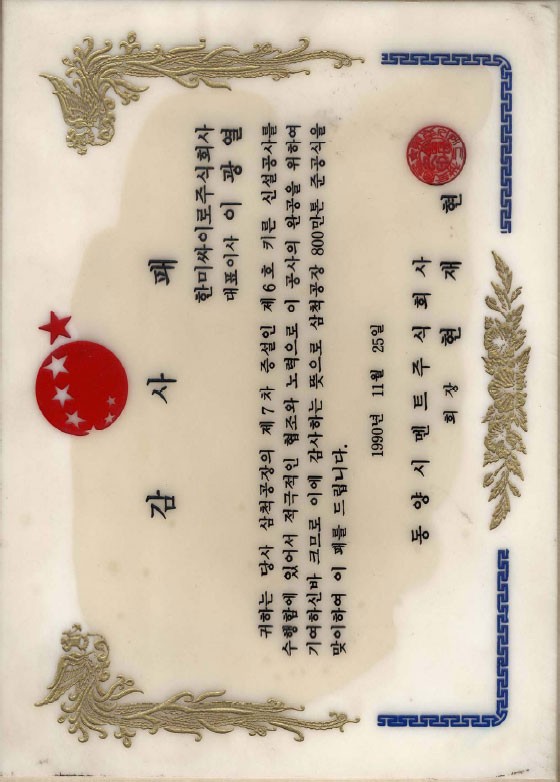 감 사 패
한미싸이로주식회사
대표이사 이 광 열
귀하는 당사 삼척공장의 제7차 증설인 제6호 키른 신설공사를
수행함에 있어서 적극적인 협조와 노력으로 이 공사의 완공을 위하여
기여하신바 크므로 이에 감사하는 뜻으로 삼척공장 800만톤 준공식을
맞이하여 이 패를 드립니다.
1990년 11월 25일
동 양 시 멘 트 주 식 회 사
회 장 현 재 현